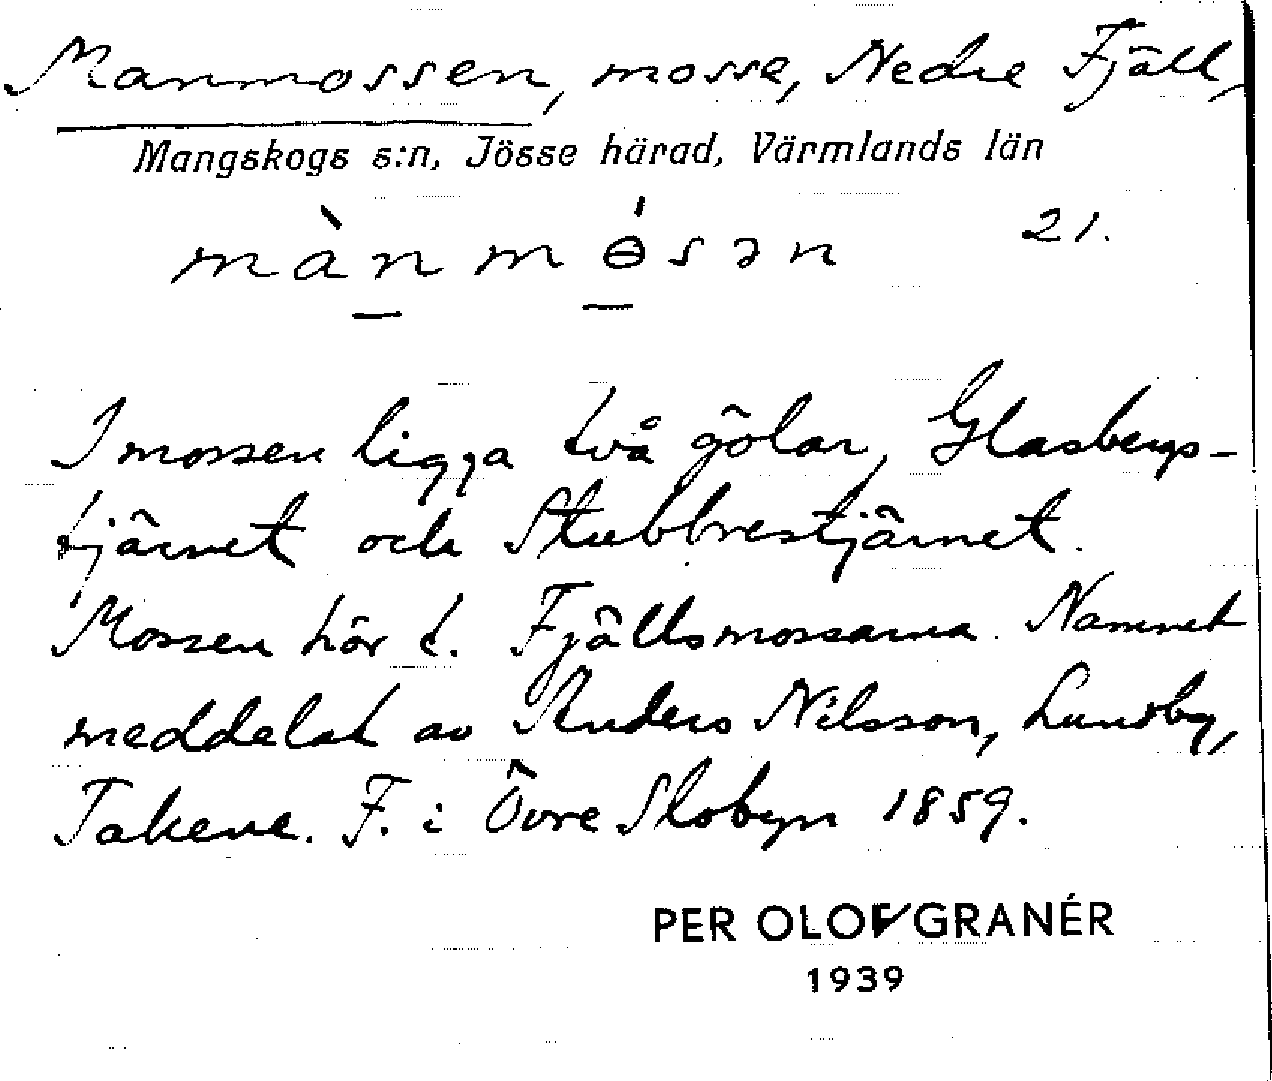 Manmossen, mosse, Nedre Fjäll,
Mangskogs s:n, Jösse härad, Värmlands län
mànmɵ́sən 21.
I mossen ligga två gölar, Glasbergs-
tjärnet och Stubbrestjärnet.
Mossen hör t. Fjällsmossarna. Namnet
meddelat av Anders Nilsson, Lundby,
Takene. F. i Övre Slobyn 1859.
PER OLOF GRANÉR
1939